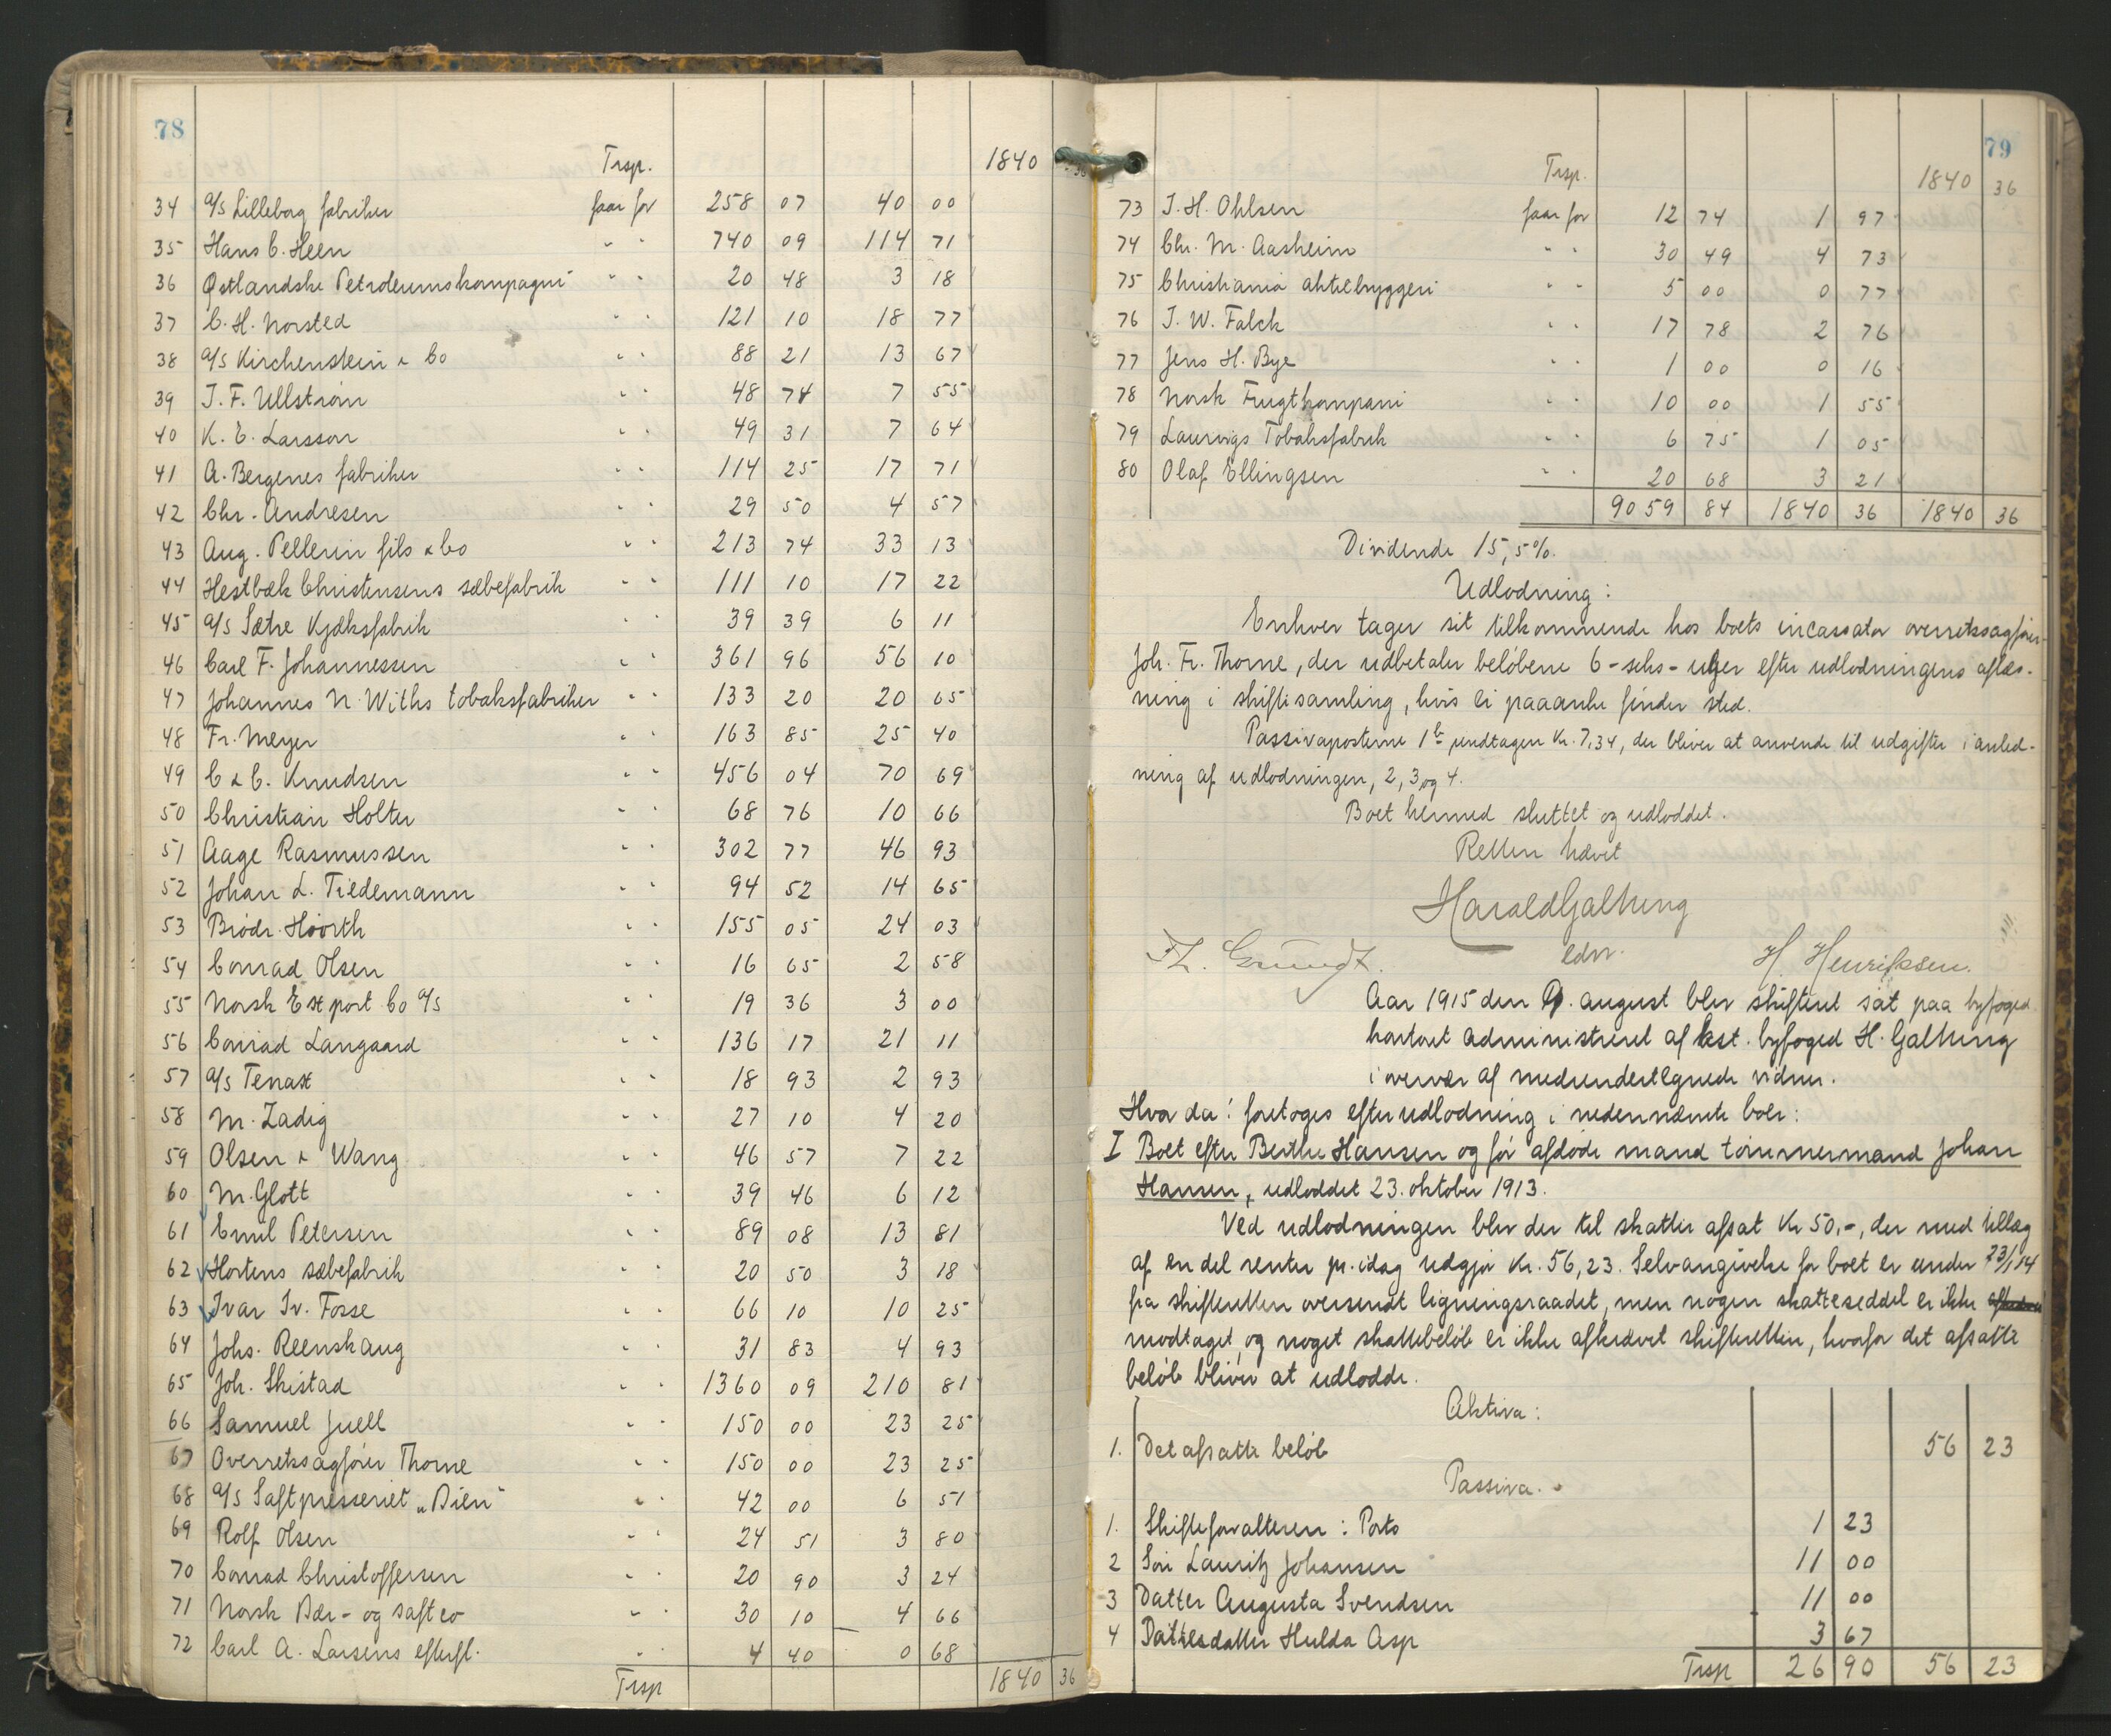 78
Trsp. 1840 36
34 A/S Lilleborg fabriker faar for 258 07 40 00
35 Hans C. Heen " " 740 09 114 71
36 Østlandske Petroleumskompagni " " 20 48 3 18
37 C. H. Norsted " " 121 10 18 77
38 A/S Kirchenstein & Co " " 88 21 13 67
39 J. F. Ullstrøm " " 48 74 7 55
40 K. E. Larsson " " 49 31 7 64
41 A. Bergenes fabriker " " 114 25 17 71
42 Chr. Andresen " " 29 50 4 57
43 Aug. Pellerin fils & Co " " 213 74 33 13
44 Hestbæk Christensens sæbefabrik " " 111 10 17 22
45 A/S Sætre Kjæksfabrik " " 39 39 6 11
46 Carl F. Johannessen " " 361 96 56 10
47 Johannes N. Withs tobaksfabriker " " 133 20 20 65
48 Fr. Meyer " " 163 85 25 40
49 C & C. Knudsen " " 456 04 70 69
50 Christian Holter " " 68 76 10 66
51 Aage Rasmussen " " 302 77 46 93
52 Johan L. Tiedemann " " 94 52 14 65
53 Brødr. Hoorth " " 155 05 24 03
54 Conrad Olsen " " 16 65 2 58
55 Norsk Export Co A/S " " 19 36 3 00
56 Conrad Langaard " " 136 17 21 11
57 A/S Tenax " " 18 93 2 93
58 M. Zadig " " 27 10 4 20
59 Olsen & Wang " " 46 57 7 22
60 M. Glott " " 39 46 6 12
61 Emil Petersen " " 89 08 13 81
62 Hortens sæbefabrik " " 20 50 3 18
63 Ivar Iv. Fosse " " 66 10 10 25
64 Johs. Reenskaug " " 31 83 4 93
65 Joh. Skistad " " 1360 09 210 81
66 Samuel Juell " " 150 00 23 25
67 Overretssagfører Thorne " " 150 00 23 25
68 A/S Saftpresseriet "Bien" " " 42 00 6 51
69 Rolf Olsen " " 24 51 3 80
70 Conrad Christoffersen " " 20 90 3 24
71 Norsk Bær- og saft co " " 30 10 4 66
72 Carl A. Larsens efterfl. " " 4 40 0 68
Trsp 1840 36
79
Trsp. 1840 36
73 J. H. Ohlsen faar for 12 74 1 97
74 Chr. M. Aasheim " " 30 49 4 73
75 Christiania aktiebryggeri " " 5 00 0 77
76 J. W. Falck " " 17 78 2 76
77 Jens H. Bye " " 1 00 0 16
78 Norsk Frugtkompani " " 10 00 1 55
79 Laurvigs Tobaksfabrik " " 6 75 1 05
80 Olaf Ellingsen " " 20 68 3 21
9059 84 1840 36 1840 36
Dividende 15,5%.
Udlodning:
Enhver tager sit tilkommende hos boets incassator overretssagfører
Joh. Fr. Thorne, der udbetaler beløbene 6-seks-uger efter udlodningens aflæs-
ning i skiftesamling, hvis ei paaanke finder sted.
Passivaposterne 1b undtagen Kr. 7,34, der bliver at anvende til udgifter i anled-
ning af udlodningen, 2, 3 og 4.
Boet hermed sluttet og udloddet.
Retten hævet
Harald Galtung
edsv.
Fz. Grundt. H. Henriksen.
Aar 1915 den 9. august blev skifteret sat paa byfoged
kontoret administreret af kst. byfoged H. Galtung
i overvær af medundertegnede vidner.
Hvor da: foretoges efterudlodning i nedennævnte boer:
I Boet efter Berthe Hansen og før afdøde mand tømmermand Johan
Hansen, udloddet 23. oktober 1913.
Ved udlodningen blev der til skatter afsat Kr 50,-, der med tillæg
af en del renter pr. idag udgjør Kr. 56,23. Selvangivelse for boet er under 23/1 14
fra skifteretten oversendt ligningsraadet, men nogen skatteseddel er ikke
modtaget, og noget skattebeløb er ikke afkrævet skifteretten, hvorfor det afsatte
beløb bliver at udlodde.
Aktiva:
1. Det afsatte beløb 56 23
Passiva.
1. Skifteforvalteren: Porto 1 23
2 Søn Lauritz Johansen 11 00
3 Datter Augusta Svendsen 11 00
4 Datterdatter Hulda Asp 3 67
Trsp 26 90 56 23